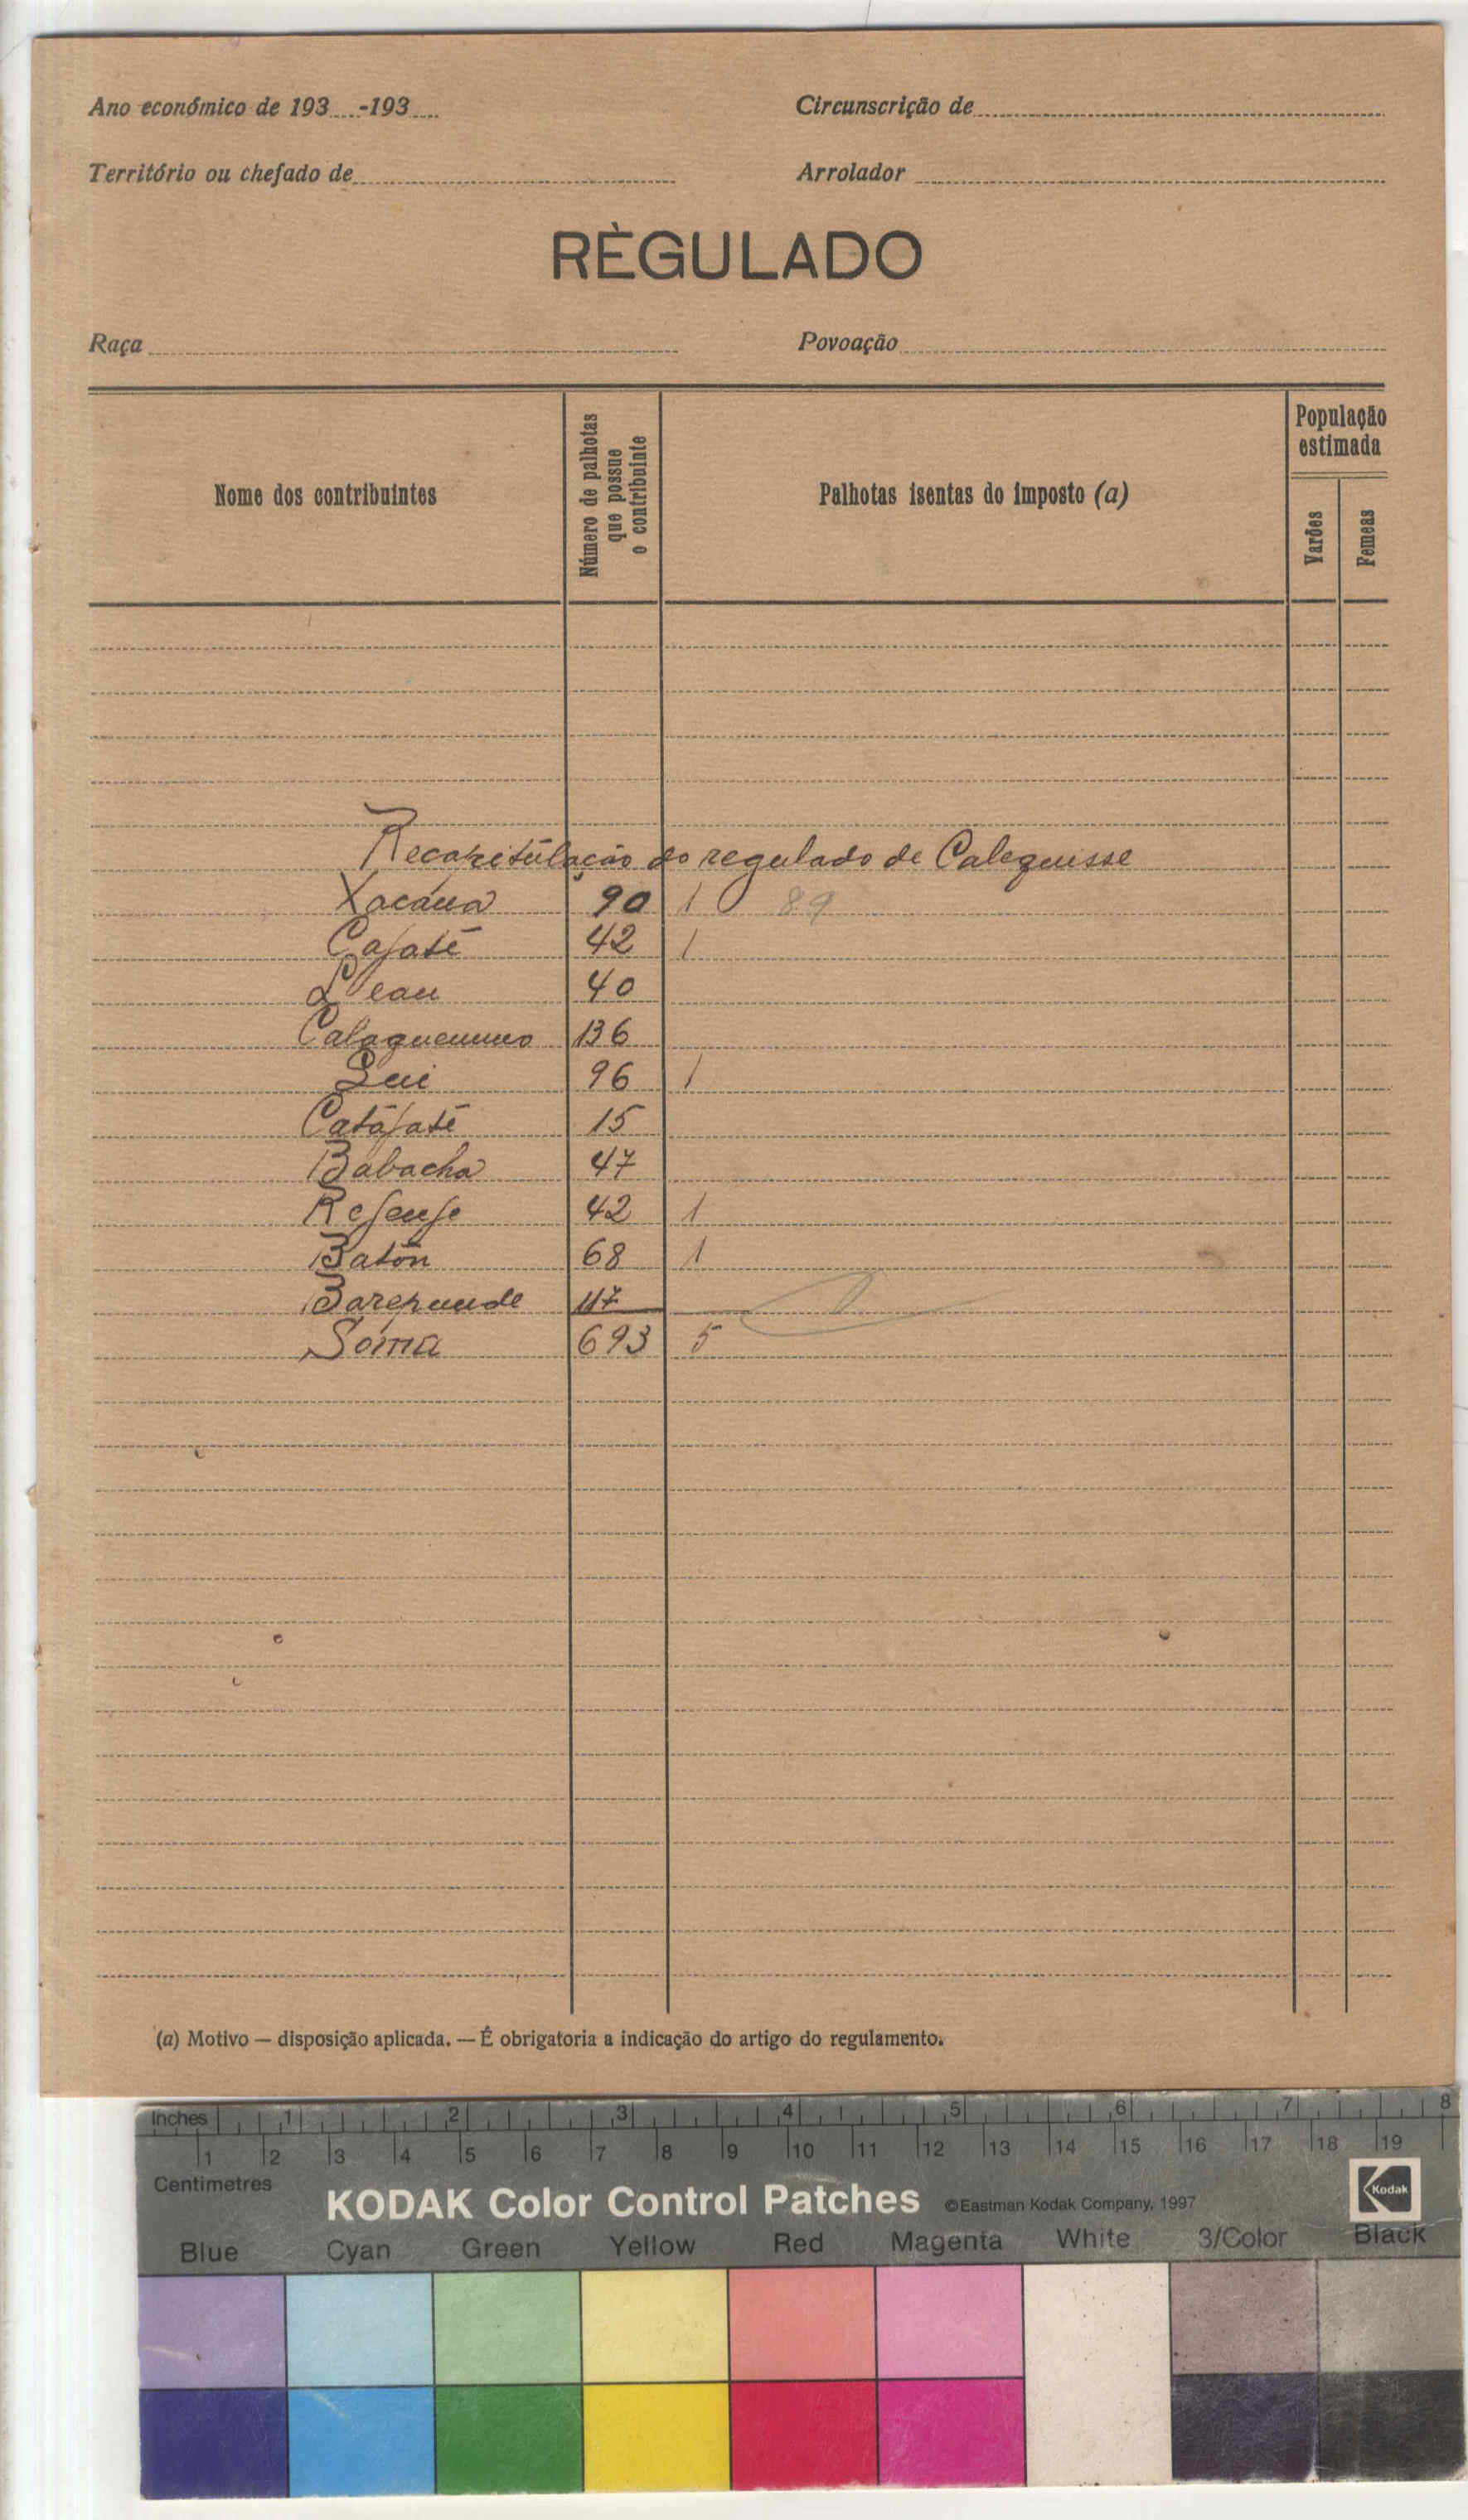 Ano económico de 193....-193....
Circunscrição de
Território ou chefado de
Arrolador
RÈGULADO
Raça
Povoação
Nome dos contribuintes
Número de palhotas que possue o contribuinte
Palhotas isentas do imposto (a)
População estimada
Varões
Femeas
Recapitúlação do regulado de Calequisse
Xacáua 90 1 89
Cajaté 42 1
Leau 40
136
96 1
Catájaté 15
Babacha 47
42 1
Batôn 68 1
117
Sôma 693 5
(a) Motivo — disposição aplicada. — É obrigatoria a indicação do artigo do regulamento.
Inches 1 2 3 4 5 6 7 8
1 2 3 4 5 6 7 8 9 10 11 12 13 14 15 16 17 18 19
Centimetres
KODAK Color Control Patches ©Eastman Kodak Company, 1997 Kodak
Blue Cyan Green Yellow Red Magenta White 3/Color Black